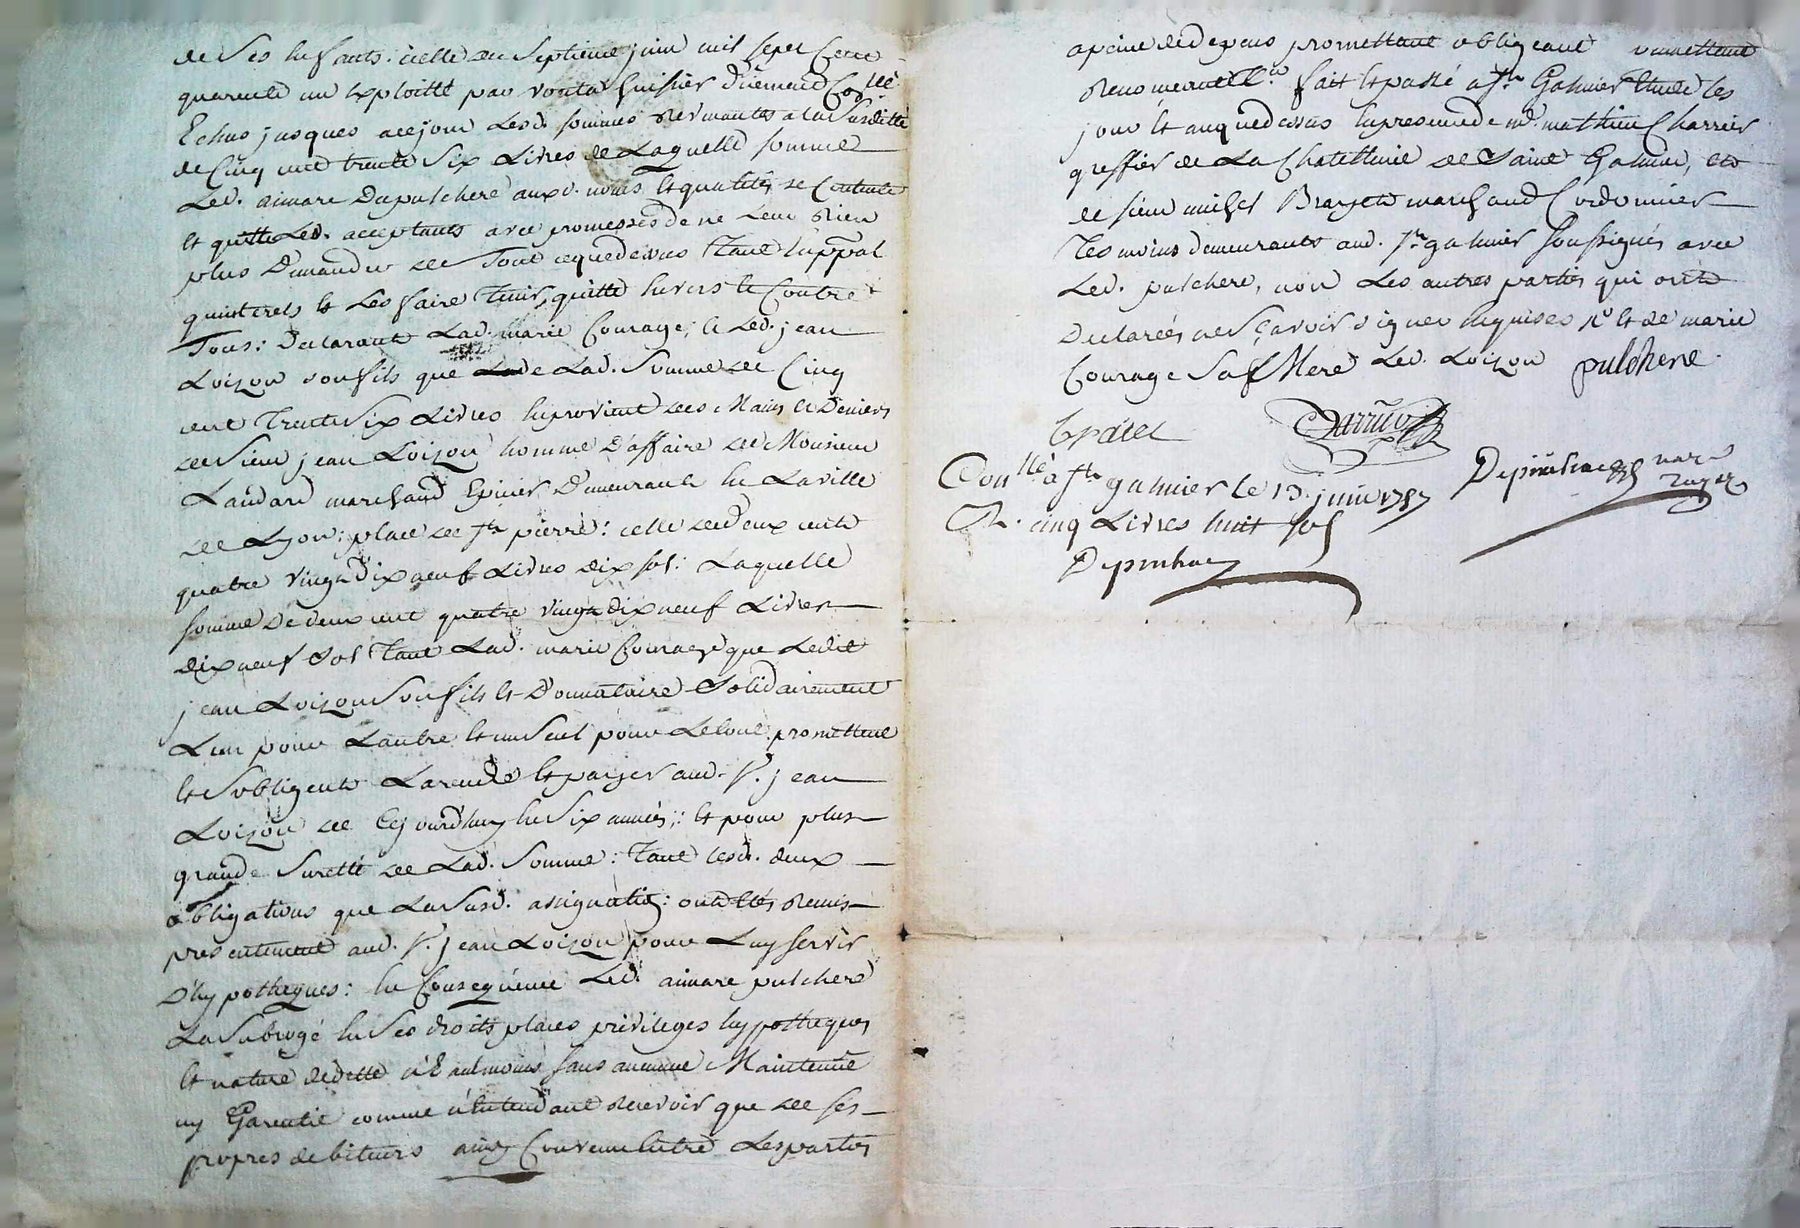 de ses Enfants: icelle du septieme juin mil sept Cent
quarente un exploitté par huissier düement Collé
Echus jusques à ce jour Lesd. sommes revenantes a la susditte
de Cinq cent trente six Livres de Laquelle somme
Led. aimare Dupulchere aux d. noms et qualités se Contente
et quitte Lesd. acceptants avec promesses de ne Leur Rien
plus Demander de Tout ce que dessus Tant En ppal
qu'interets et Les faire Tenir quitte Envers et Contre
Tous: Declarant Lad. marie Courage, et Led. jean
Loizon son fils que de Lad. Somme de Cinq
cent Trente Six Livres Il provient des Mains et Deniers
de Sieur jean Loizon homme D'affaire de Monsieur
Laudard marchand Epicier Demeurant En La ville
de Lyon; place de St. pierre: celle de deux cent
quatre vingt Dix neuf Livres dix sol: Laquelle
somme De deux cent quatre vingt Dix neuf Livres
dix neuf sol Tant Lad. marie Courage que Ledit
jean Loizon Son fils et Donnataire Solidairement
L'un pour L'autre et un Seul pour Le tout promettent
et S'obligent La rendre et payer aud. Sr. jean
Loizon de Cejourdhuy En Six années; et pour plus
grande Suretté de Lad. Somme: Tant Lesd. deux
obligations que La Susd. assignation: ont Etés Remis
presentement aud. Sr. jean Loizon pour Luy servir
D'hypotheques: En Consequence Led. aimare pulchere
La Subrogé En Ses droits places privileges hypotheques
et nature de dette néanmoins sans aucune Maintenüe
ny Garentie comme n'Entendant Recevoir que de ses
propres debiteurs ainsy Convenu Entre Les parties
a peine de depens promettant obligeant soumettant
Renonceant &a. fait et passé a St. Galmier Etude les
jour et an que dessus En presence de me. mathieu Charreir
greffier de La Chatellenie de Saint Galmier, et
de sieur michel marchand Cordonnier
Tesmoins demeurants aud. St. galmier soussignés avec
Led. pulchere, non Les autres parties qui ont
Declarées ne Sçavoir signer Enquises Rd. et de marie
Courage Sa Mere Led. Loizon pulchere
Conllé à St. galmier le 13. juin 1757
R. cinq Livres huit sols
Depinhac